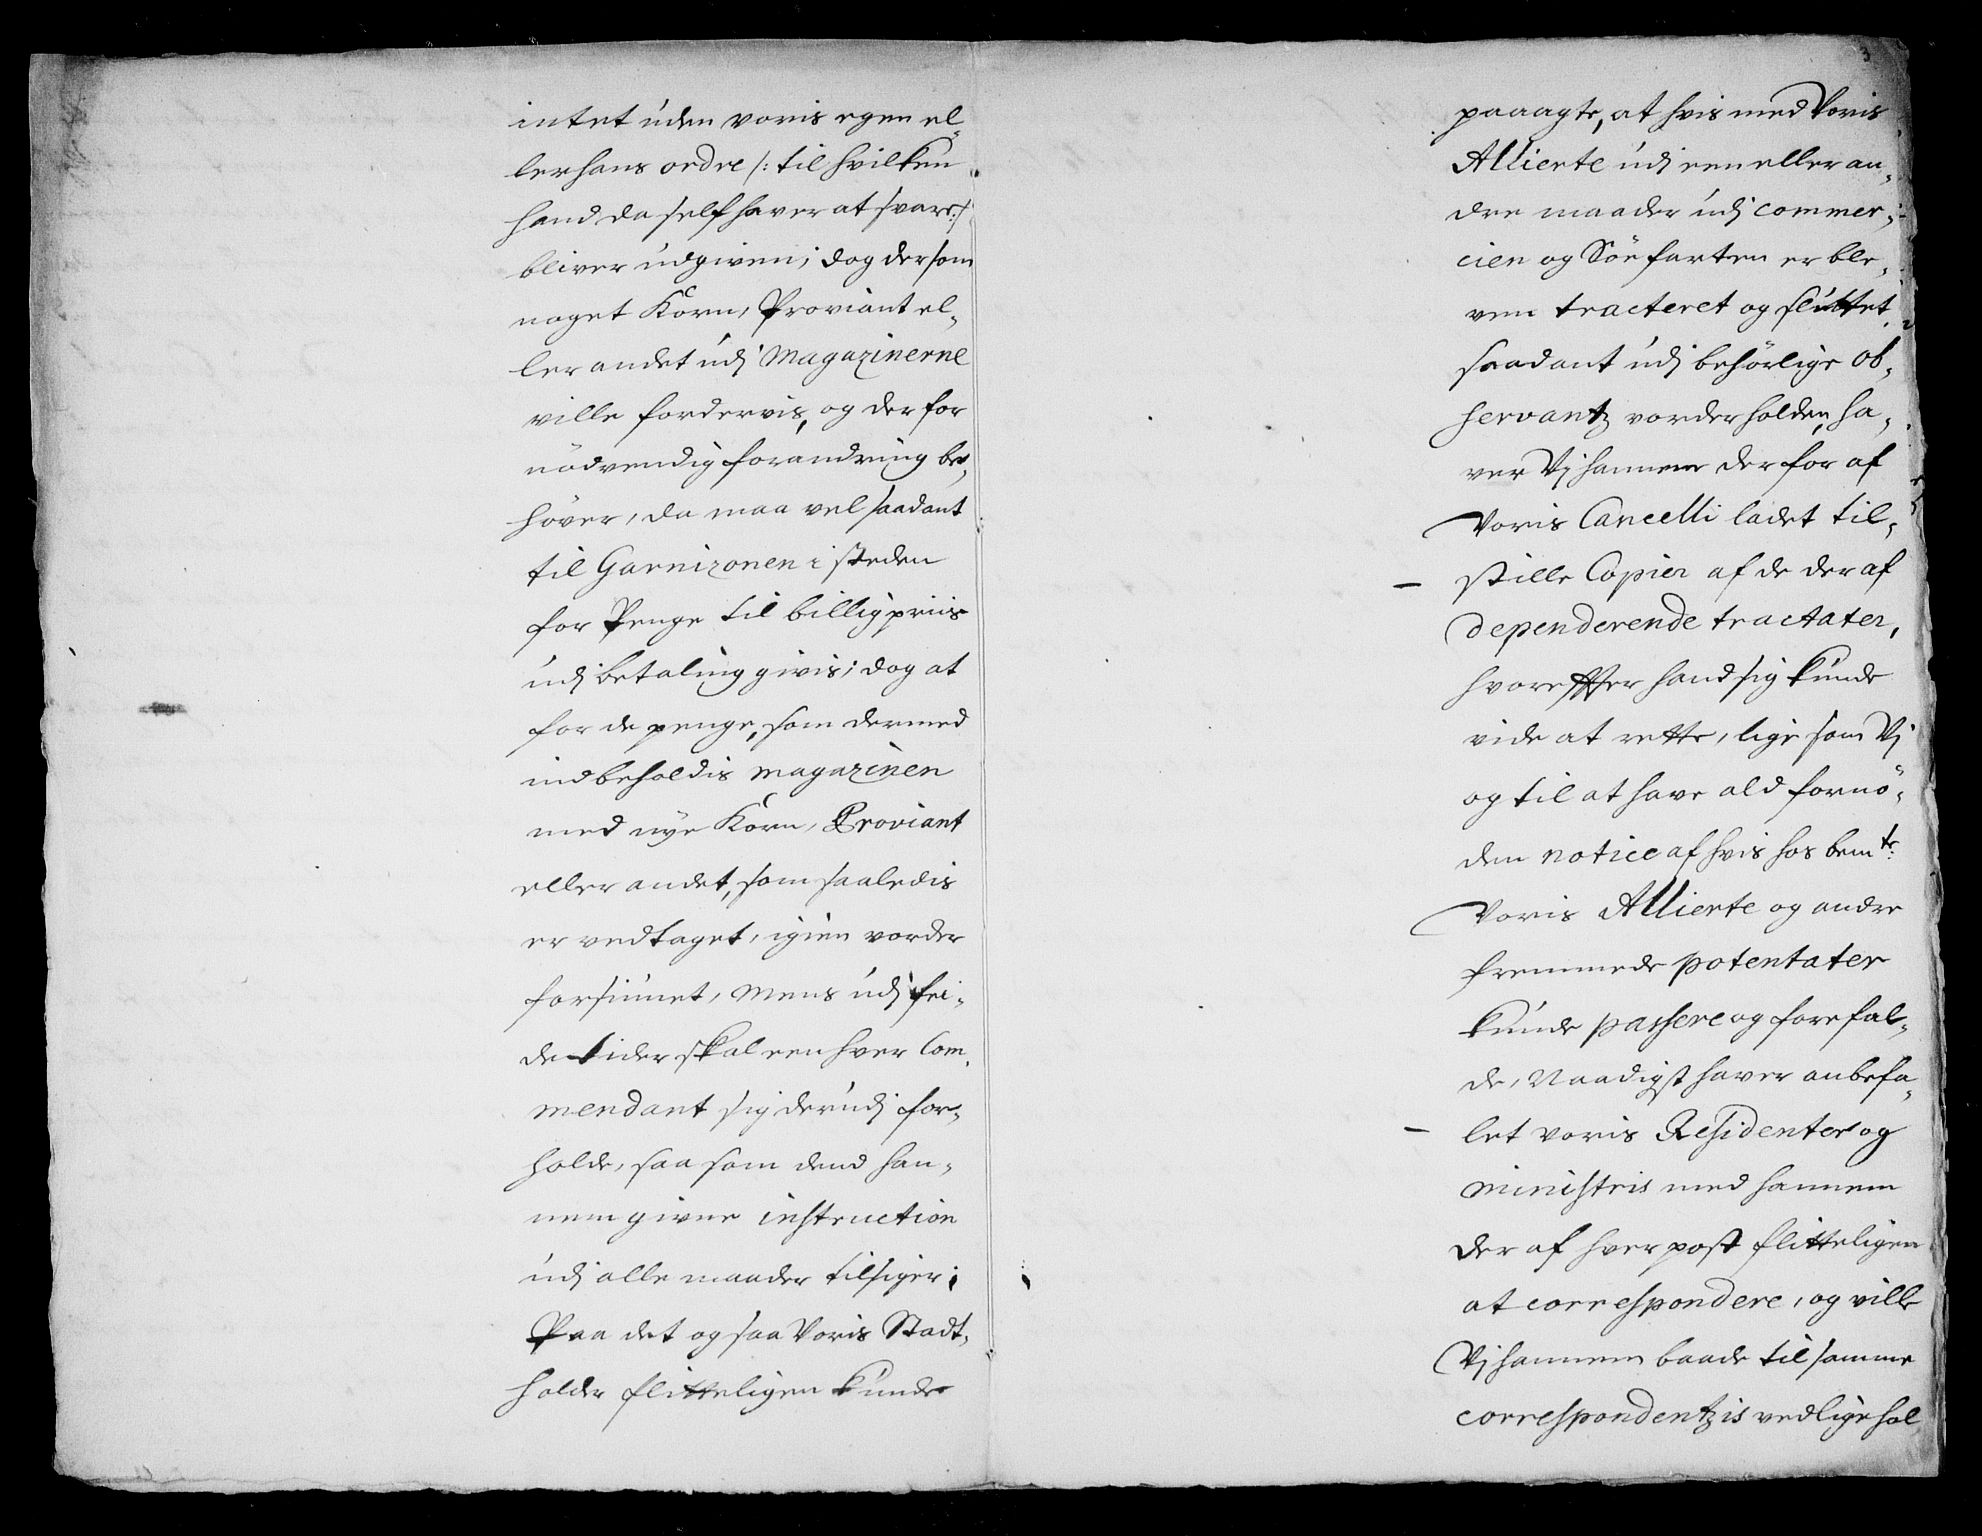 intet uden voris egen el-
ler hans ordre /: til hvilken
hand da self haver at svare :/
bliver udgiven; dog dersom
noget Korn, Proviant el-
ler andet udj Magazinerne
ville fordervis, og derfor
nödvendig forandring be-
höver, da maa vel saadant
til Garnizonen i steden
for Penge til billig priis
udj betaling givis; dog at
for de penge, som dermed
indbeholdis magazinen
med nye Korn, Proviant
eller andet, som saaledis
er vedtaget, igien vorder
forsiunet, Mens udj fei-
de tider skal een hver Com-
mendant sig derudj for-
holde, saa som dend han-
nem givne instruction
udj alle maader tilsiger;
Paa det og saa Voris Stadt-
holder flitteligen kunde
3
paaagte, at hvis med Voris
Allierte udj een eller an-
dre maader udj commer-
cien og Söefarten er ble-
ven tracteret og sluttet,
saadant udj behörlige ob-
servantz vorder holden, ha-
ver Vj hannem derfor af
Voris Cancelli ladet til-
stille Copier af de deraf
dependerende tractater,
hvorefter hand sig kunde
vide at rette, lige som Vj
og til at have ald fornö-
den notice af hvis hos bemte:
Voris Allierte og andre
fremmede potentater
kunde passere og forefal-
de, Naadigst haver anbefa-
let voris Residenter og
ministris med hannem
der af hver post flitteligen
at correspondere, og ville
Vj hannem baade til samme
correspondentzis vedligehol